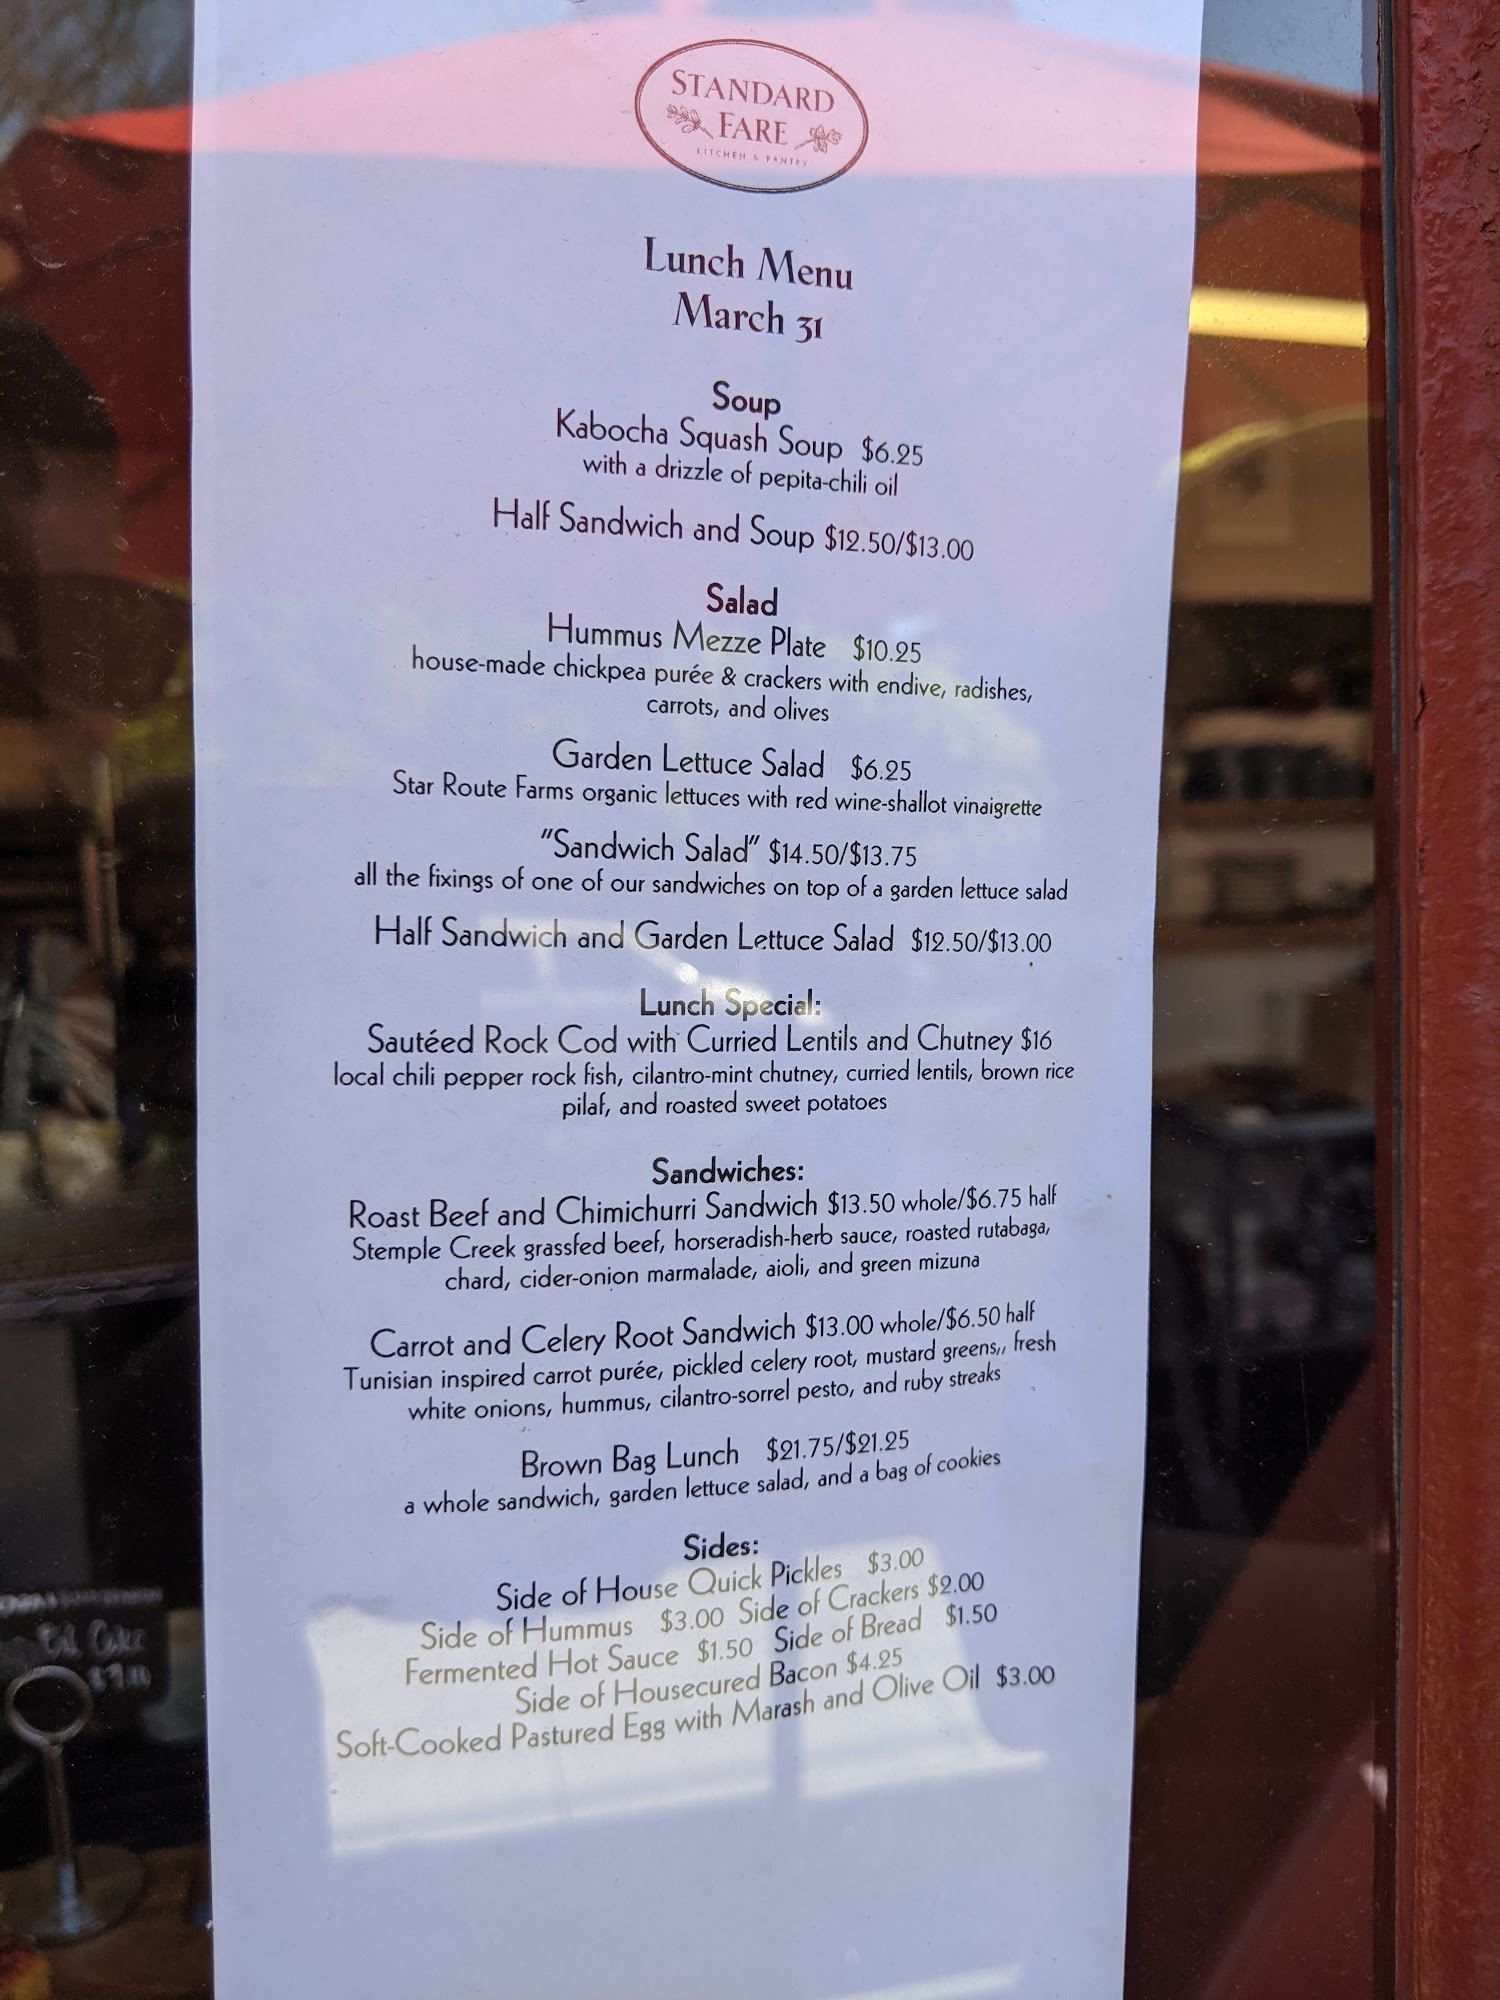 STANDARD
FARE
KITCHEN & PANTRY
Lunch Menu
March 31
Soup
Kabocha Squash Soup $6.25
with a drizzle of pepita-chili oil
Half Sandwich and Soup $12.50/$13.00
Salad
Hummus Mezze Plate $10.25
house-made chickpea purée & crackers with endive, radishes,
carrots, and olives
Garden Lettuce Salad $6.25
Star Route Farms organic lettuces with red wine-shallot vinaigrette
"Sandwich Salad" $14.50/$13.75
all the fixings of one of our sandwiches on top of a garden lettuce salad
Half Sandwich and Garden Lettuce Salad $12.50/$13.00
Lunch Special:
Sautéed Rock Cod with Curried Lentils and Chutney $16
local chili pepper rock fish, cilantro-mint chutney, curried lentils, brown rice
pilaf, and roasted sweet potatoes
Sandwiches:
Roast Beef and Chimichurri Sandwich $13.50 whole/$6.75 half
Stemple Creek grassfed beef, horseradish-herb sauce, roasted rutabaga,
chard, cider-onion marmalade, aioli, and green mizuna
Carrot and Celery Root Sandwich $13.00 whole/$6.50 half
Tunisian inspired carrot purée, pickled celery root, mustard greens,, fresh
white onions, hummus, cilantro-sorrel pesto, and ruby streaks
Brown Bag Lunch $21.75/$21.25
a whole sandwich, garden lettuce salad, and a bag of cookies
Sides:
Side of House Quick Pickles $3.00
Side of Hummus $3.00 Side of Crackers $2.00
Fermented Hot Sauce $1.50 Side of Bread $1.50
Side of Housecured Bacon $4.25
Soft-Cooked Pastured Egg with Marash and Olive Oil $3.00